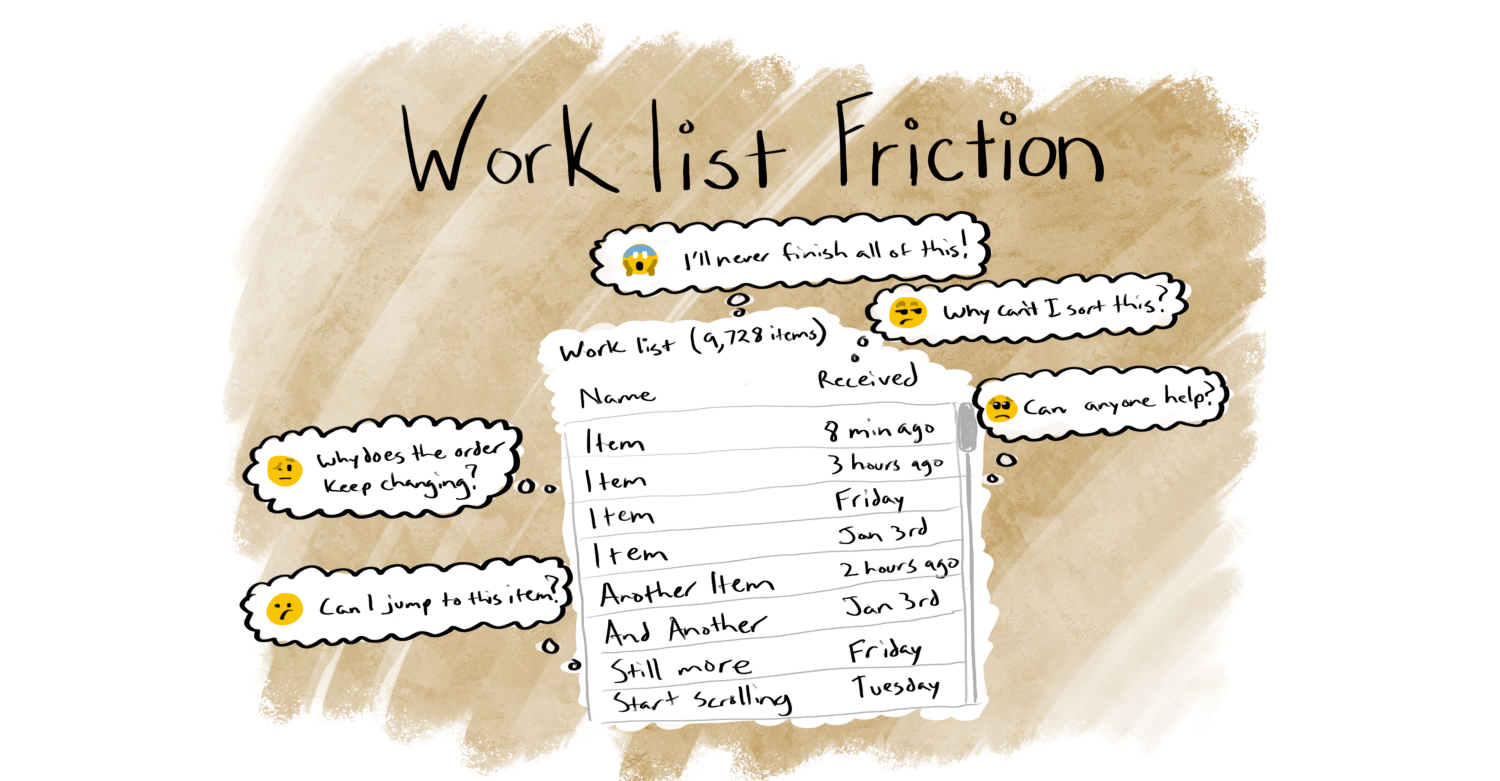 Work list Friction
I'll never finish all of this!
Why can't I sort this?
Work list (9,728 items)
Name Received
Can anyone help?
Item 8 min ago
Item 3 hours ago
Item Friday
Item Jan 3rd
Another Item 2 hours ago
And Another Jan 3rd
Still more Friday
Start Scrolling Tuesday
Why does the order
keep changing?
Can I jump to this item?